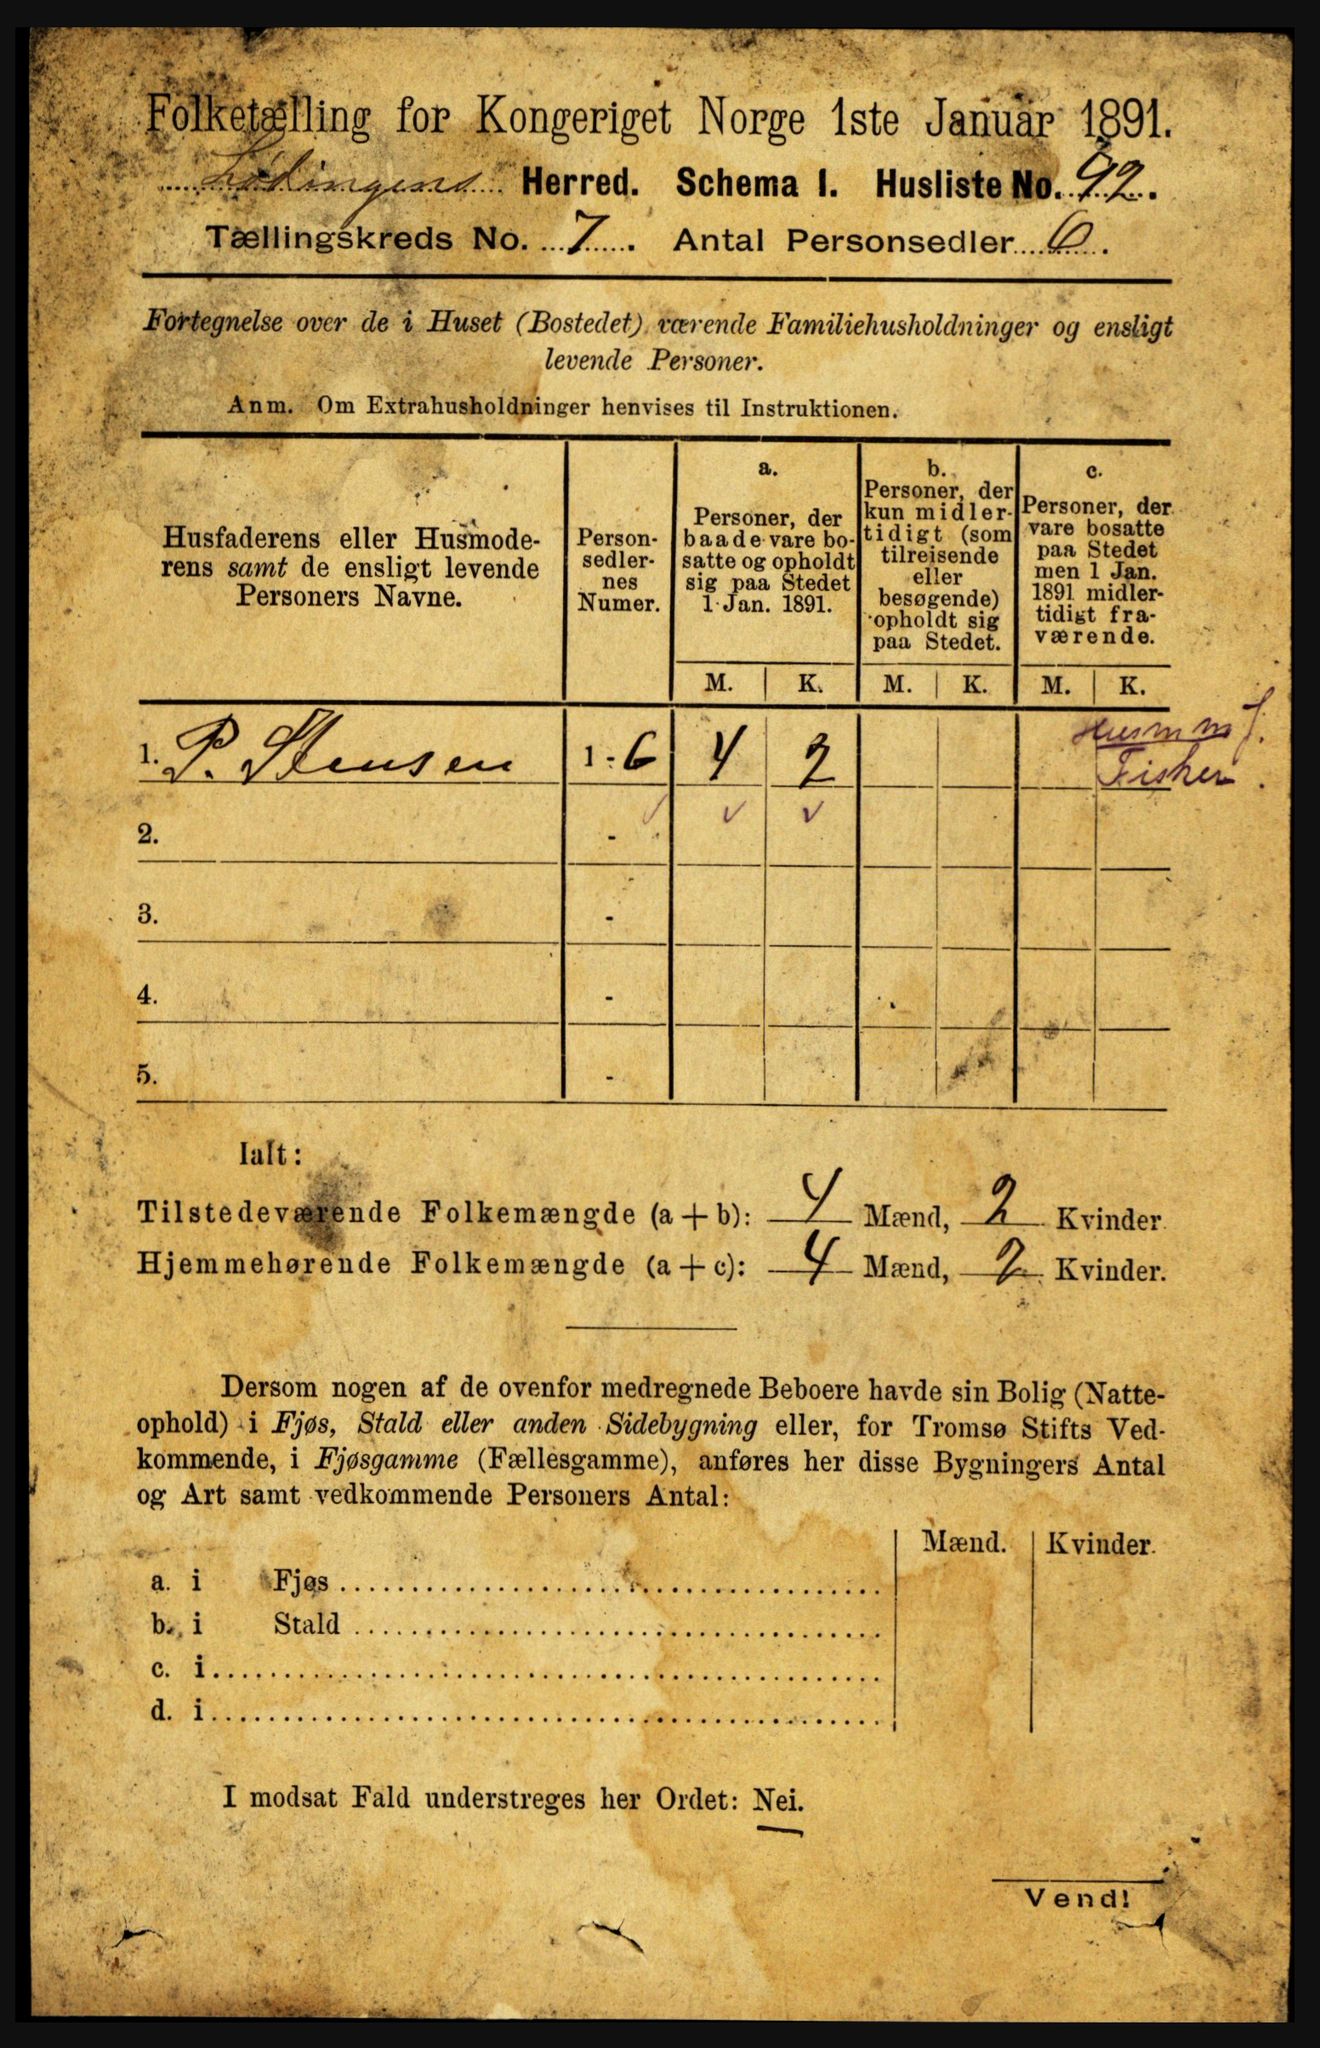 Folketælling for Kongeriget Norge 1ste Januar 1891.
Lødingens Herred. Schema I. Husliste No. 92.
Tællingskreds No. 7. Antal Personsedler 6.
Fortegnelse over de i Huset (Bostedet) værende Familiehusholdninger og ensligt
levende Personer.
Anm. Om Extrahusholdninger henvises til Instruktionen.
Husfaderens eller Husmode-
rens samt de ensligt levende
Personers Navne.
Person-
sedler-
nes
Numer.
a.
Personer, der
baade vare bo-
satte og opholdt
sig paa Stedet
1 Jan. 1891.
b.
Personer, der
kun midler-
tidigt (som
tilreisende
eller
besøgende)
opholdt sig
paa Stedet.
c.
Personer, der
vare bosatte
paa Stedet
men 1 Jan.
1891 midler-
tidigt fra-
værende.
M. K. M. K. M. K.
1. P. Stensen 1 - 6 4 2
Husmm f.
Fisker.
2. -
3. -
4. -
5. -
Ialt:
Tilstedeværende Folkemængde (a + b): 4 Mænd, 2 Kvinder.
Hjemmehørende Folkemængde (a + c): 4 Mænd, 2 Kvinder.
Dersom nogen af de ovenfor medregnede Beboere havde sin Bolig (Natte-
ophold) i Fjøs, Stald eller anden Sidebygning eller, for Tromsø Stifts Ved-
kommende, i Fjøsgamme (Fællesgamme), anføres her disse Bygningers Antal
og Art samt vedkommende Personers Antal:
Mænd. Kvinder.
a. i Fjøs
b. i Stald
c. i
d. i
I modsat Fald understreges her Ordet: Nei.
Vend!